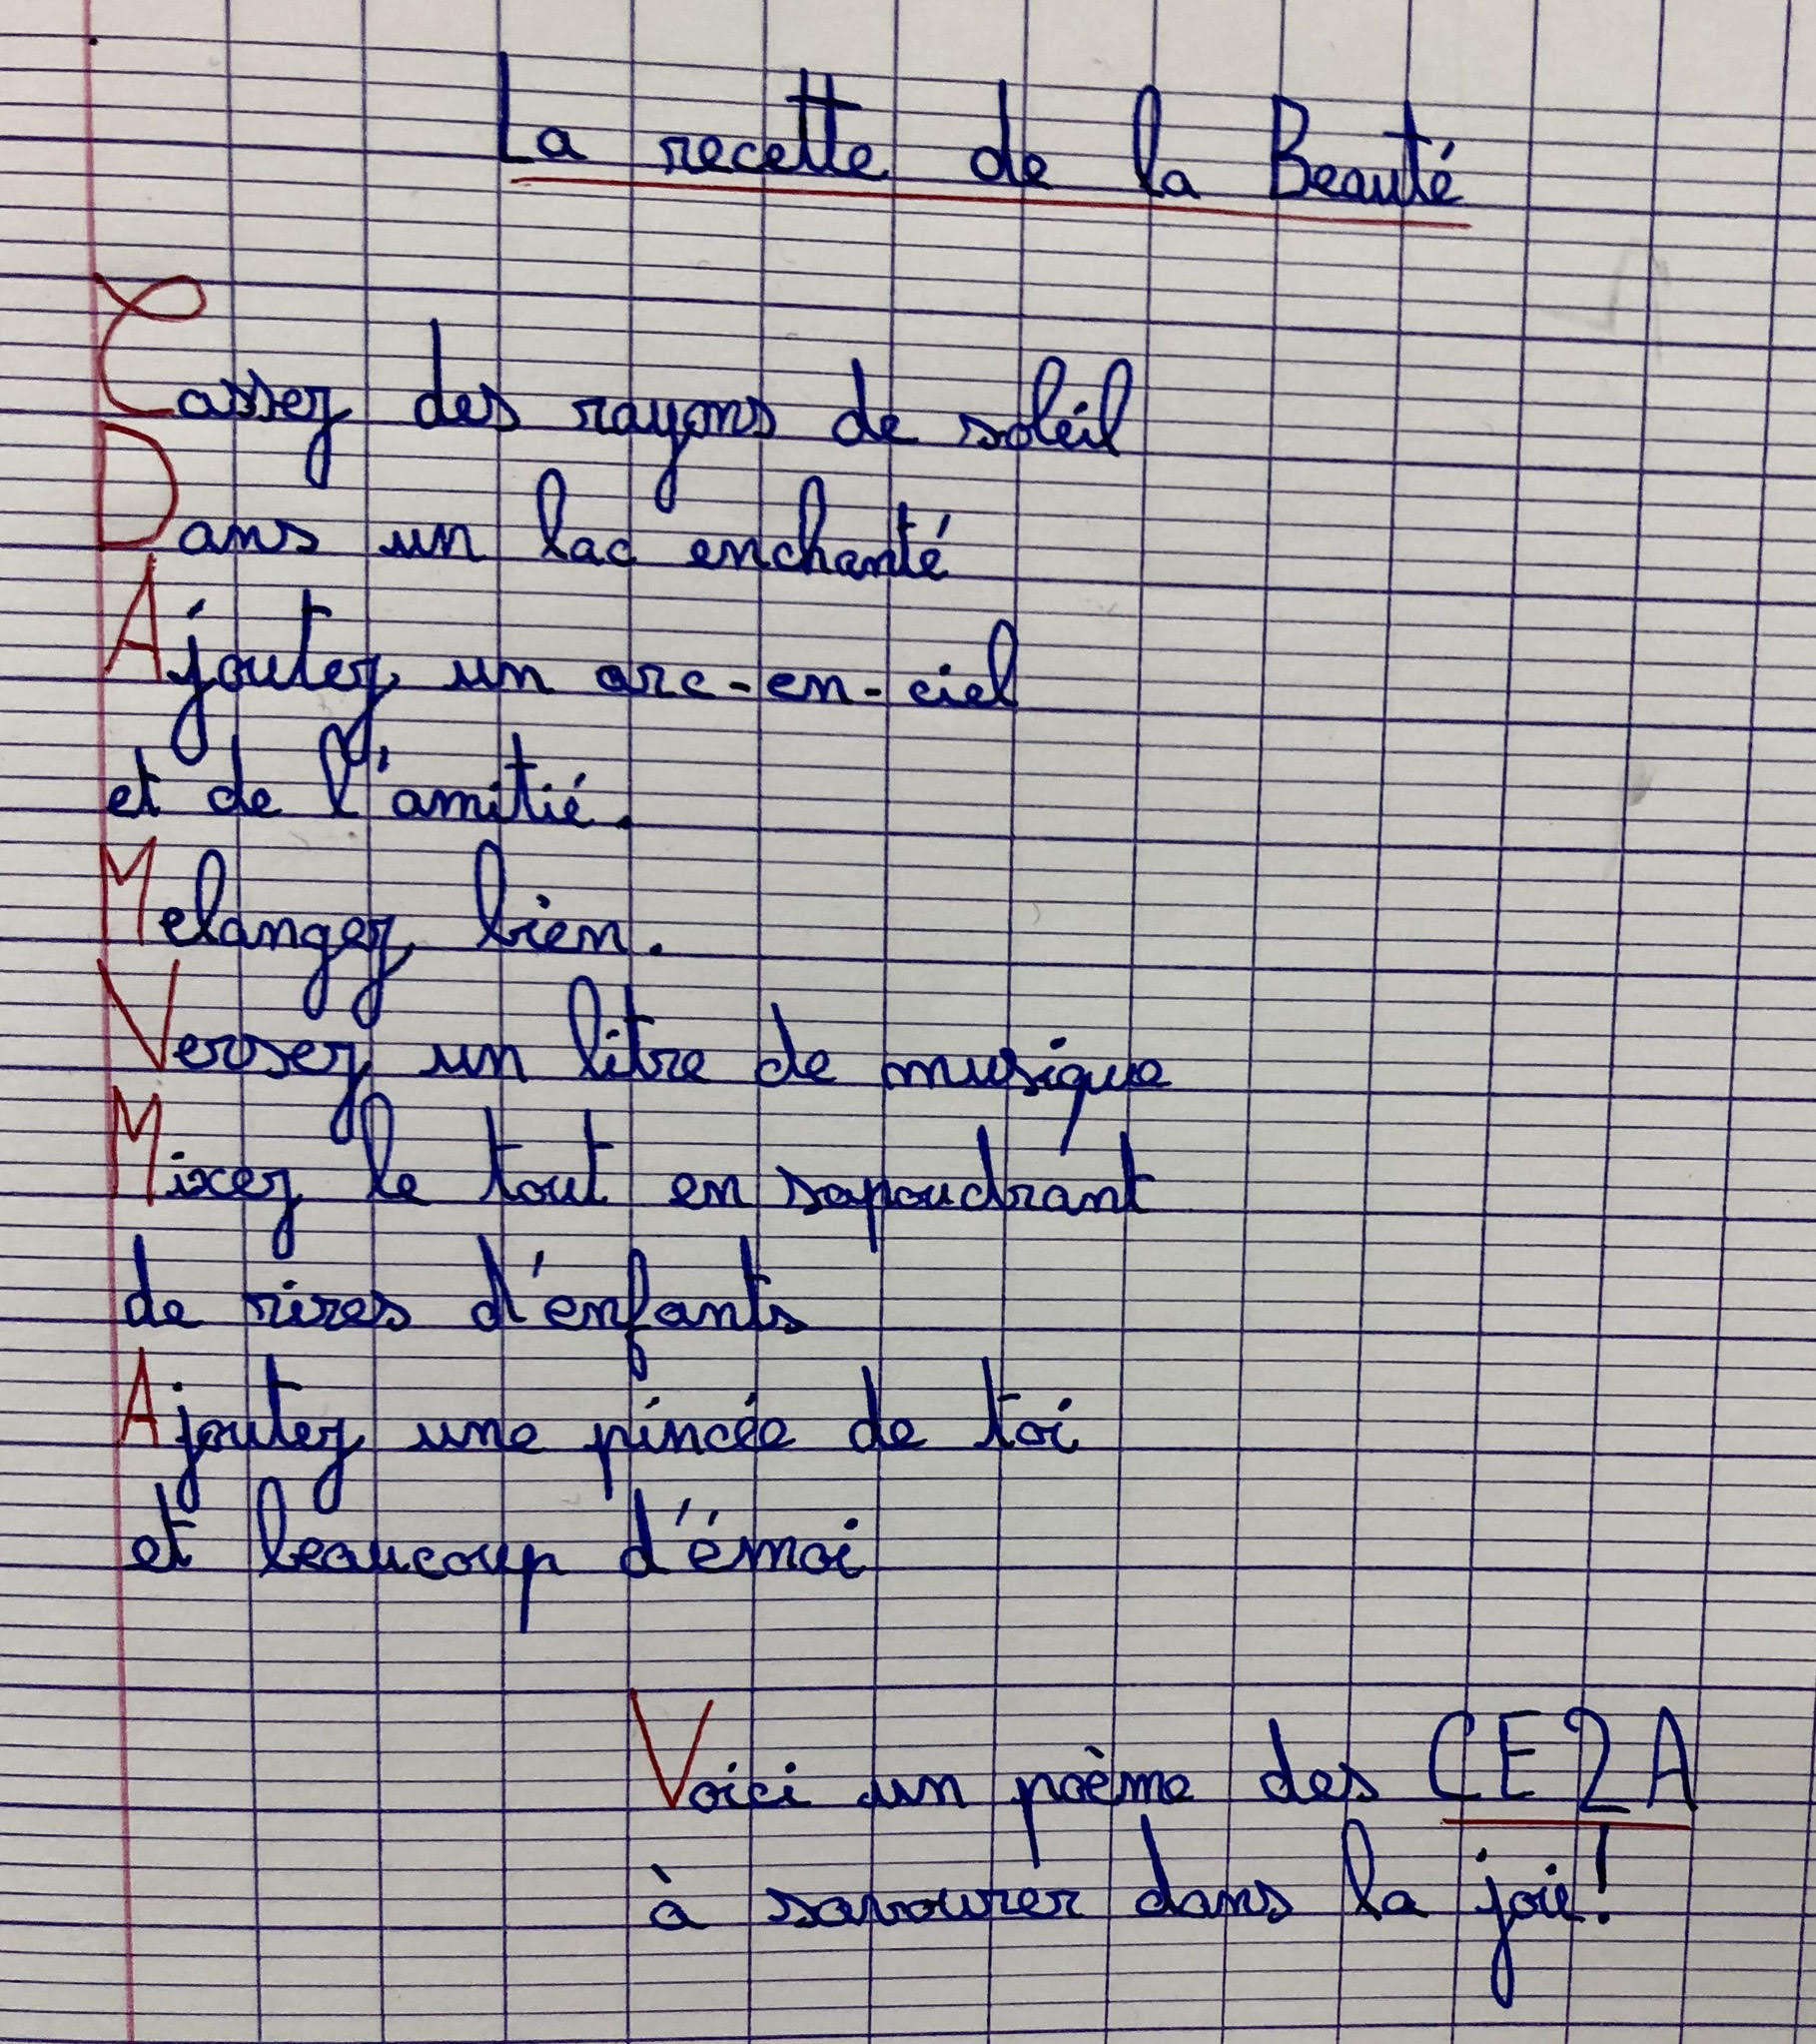 La recette de la Beauté
Cassez des rayons de soleil
Dans un lac enchanté
Ajoutez un arc-en-ciel
et de l'amitié.
Melangez bien.
Versez un litre de musique
Mixez le tout en sapoudrant
de rires d'enfants
Ajoutez une pincée de toi
et beaucoup d'émoi
Voici un poème des CE2A
à savourer dans la joie!